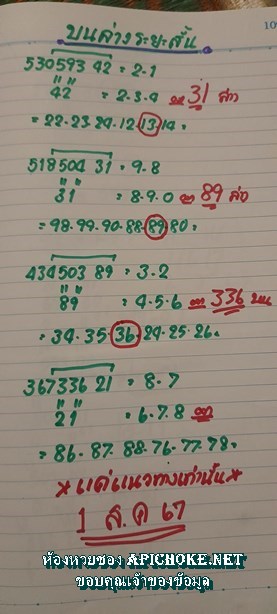 บนล่างระยะสั้น
530593 42 = 2-1
42 = 2-3-4 31 ล่าง
= 22-23-24-12-13-14=
518504 31 = 9-8
31 = 8-9-0 89 ล่าง
= 98-99-90-88-89-80=
434503 89 = 3-2
89 = 4-5-6 336 บน
= 34-35-36-24-25-26=
367336 21 = 8-7
21 = 6-7-8
= 86-87-88-76-77-78=
*แค่แนวทางเท่านั้น*
1 ส.ค 67
ห้องหวยซอง APICHOKE.NET
ขอบคุณเจ้าของข้อมูล